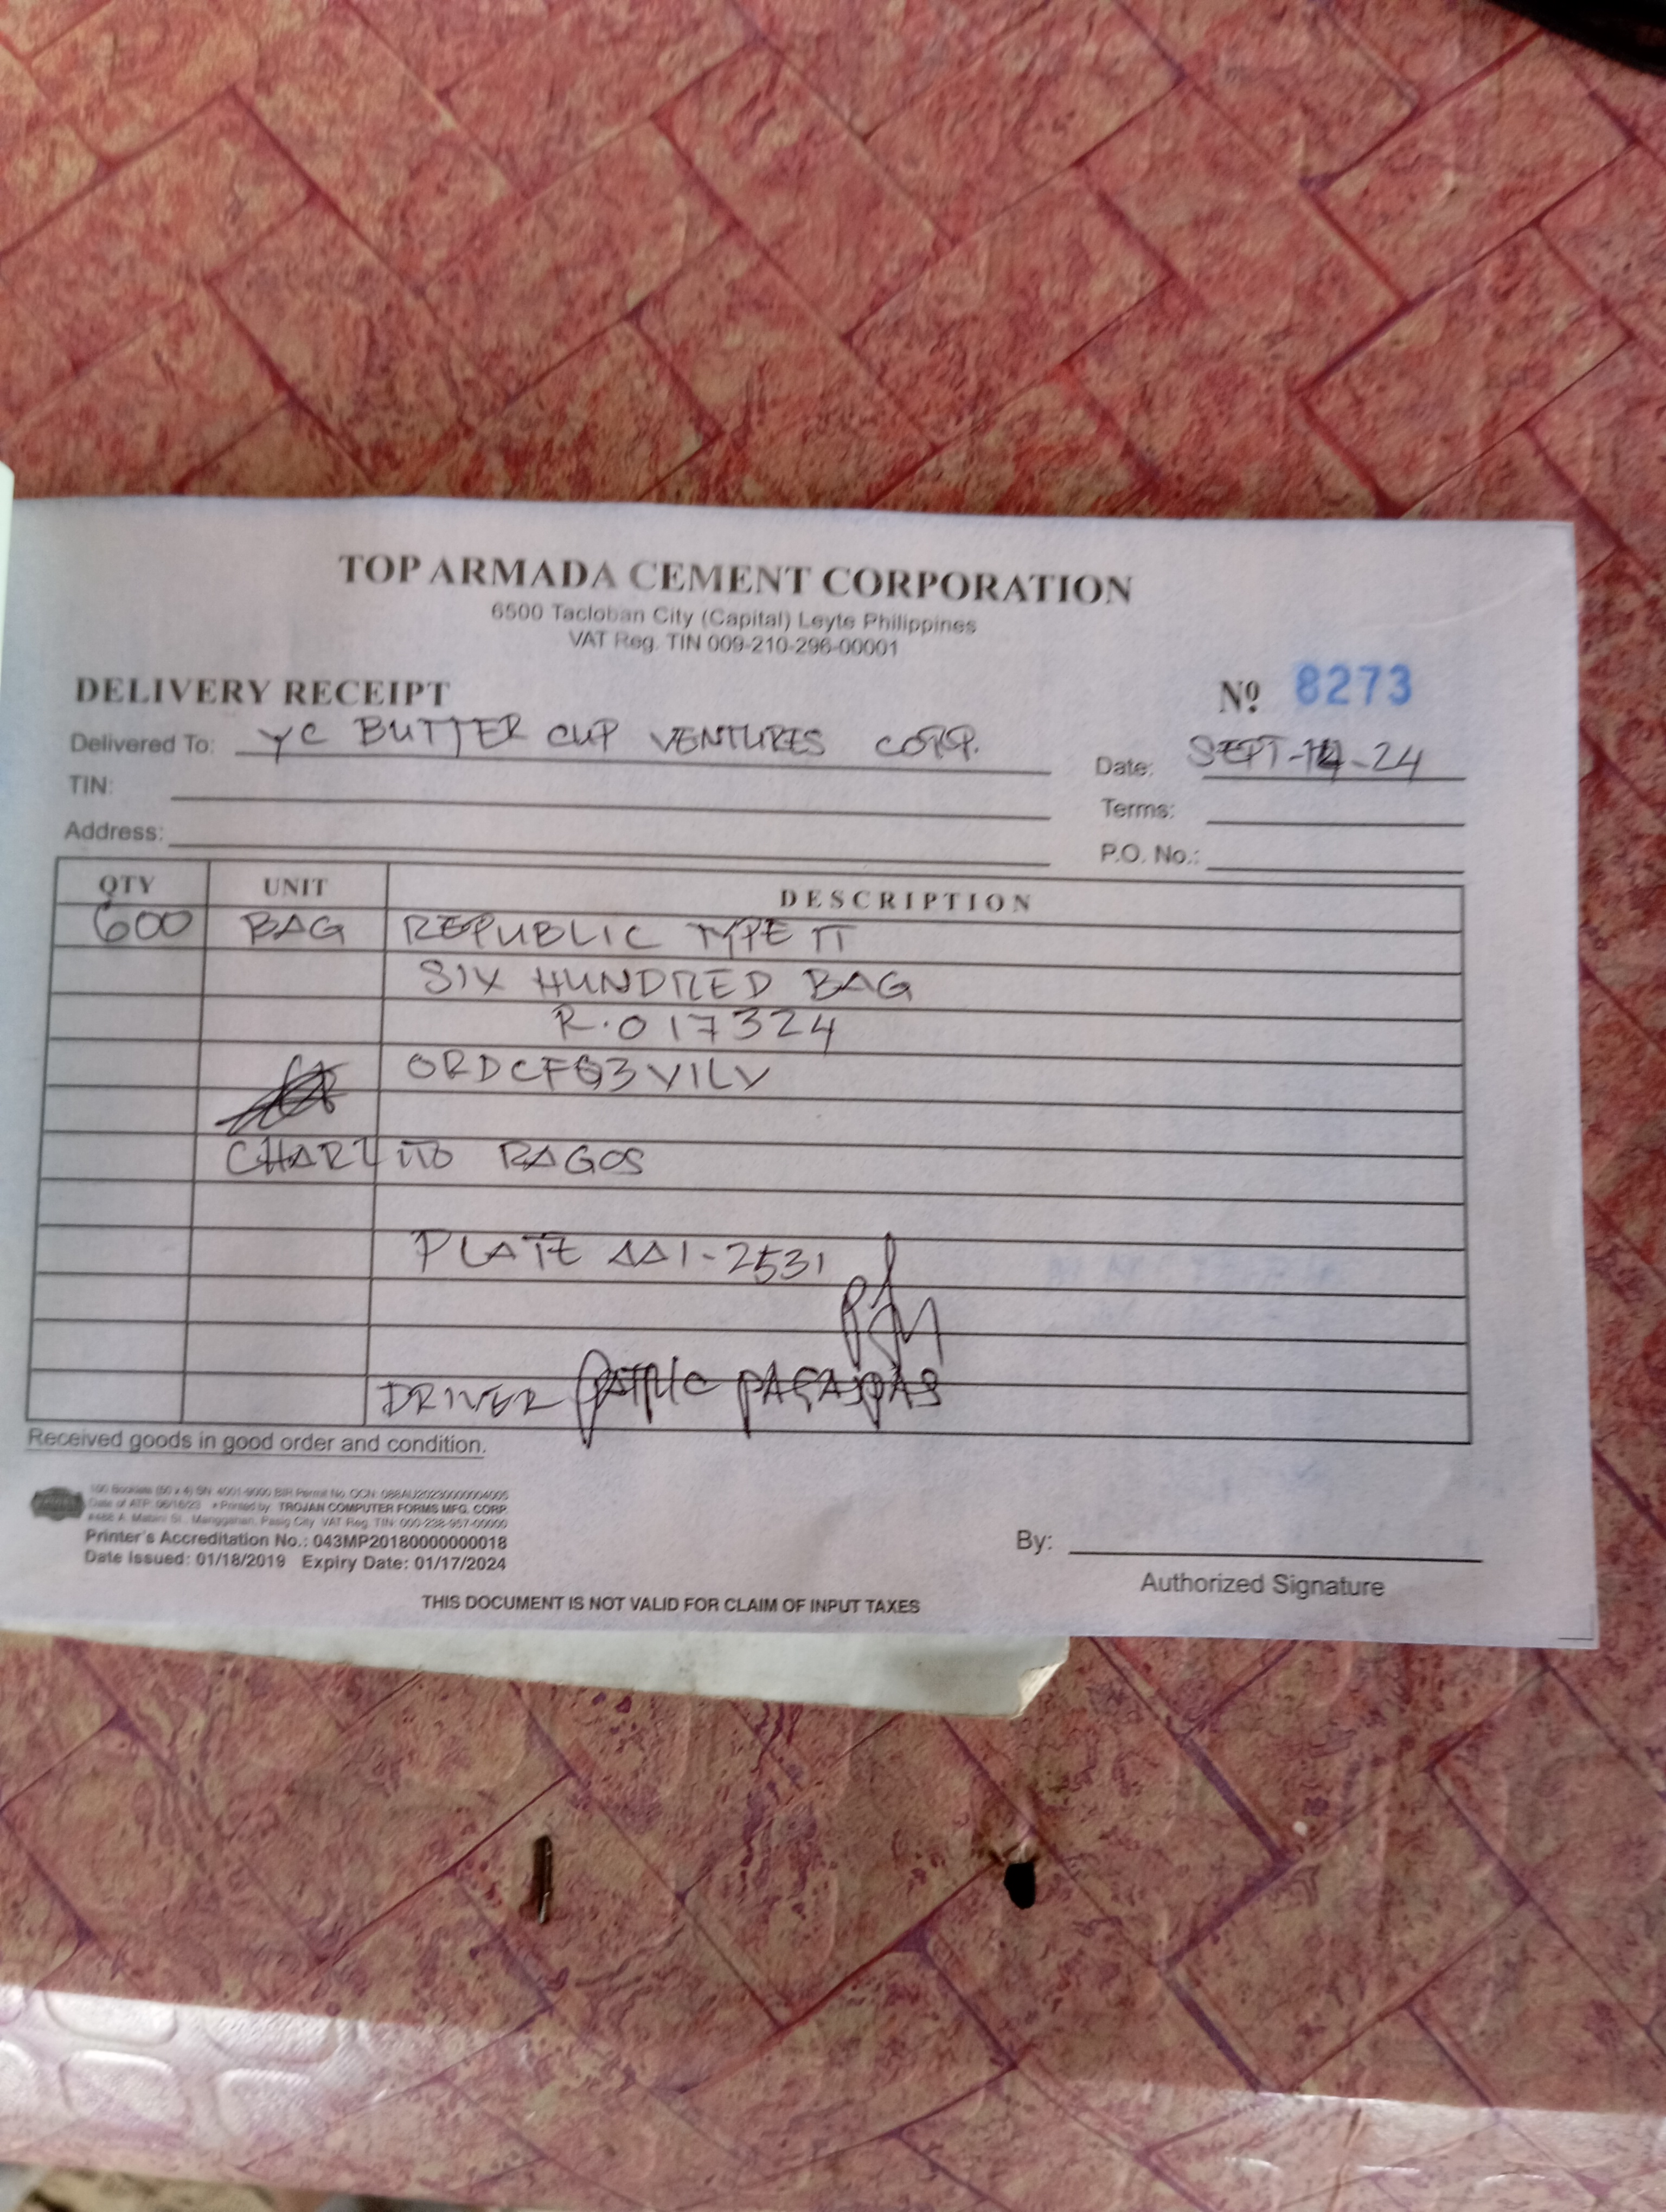 TOP ARMADA CEMENT CORPORATION
6500 Tacloban City (Capital) Leyte Philippines
VAT Reg. TIN 009-210-296-00001
DELIVERY RECEIPT Nº 8273
Delivered To: YC BUTTER CUP VENTURES CORP. Date: SEPT- -24
TIN: Terms:
Address: P.O. No.:
QTY UNIT DESCRIPTION
600 BAG REPUBLIC TYPE II
SIX HUNDRED BAG
R.017324
ORDCFQ3VILV
CHARLITO RAGOS
PLATE AAI-2531
DRIVER
Received goods in good order and condition.
100 Booklets (50 x 4) SN: 4001-9000 BIR Permit No. OCN: 088AU20230000004005
Date of ATP: 06/16/23 * Printed by: TROJAN COMPUTER FORMS MFG. CORP.
#488 A. Mabini St., Manggahan, Pasig City VAT Reg. TIN: 000-238-957-00000
Printer's Accreditation No.: 043MP20180000000018
Date Issued: 01/18/2019 Expiry Date: 01/17/2024
By:
Authorized Signature
THIS DOCUMENT IS NOT VALID FOR CLAIM OF INPUT TAXES